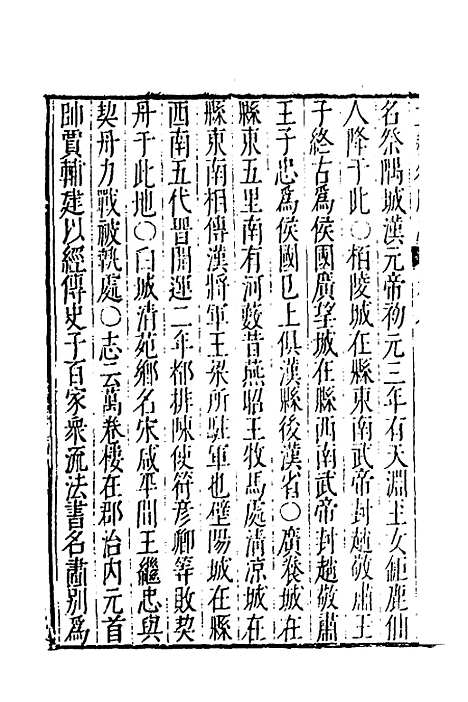 名祭隅城漢元帝初元三年有天淵玉女鉅鹿仙
人降于此○栢陵城在縣東南武帝封趙敬肅王
子終古爲侯國廣望城在縣西南武帝封趙敬肅
王子忠爲侯國已上俱漢縣後漢省○廣養城在
縣東五里南有河藪昔燕昭王牧馬處清凉城在
縣東南相傳漢將軍王梁所駐軍也壁陽城在縣
西南五代晋開運二年都排陳使符彦卿等敗契
丹于此地○白城清苑鄉名宋咸平間王繼忠與
契丹力戰被執處○志云萬卷樓在郡治内元首
帥賈輔建以經傳史子百家衆流法書名畵别爲